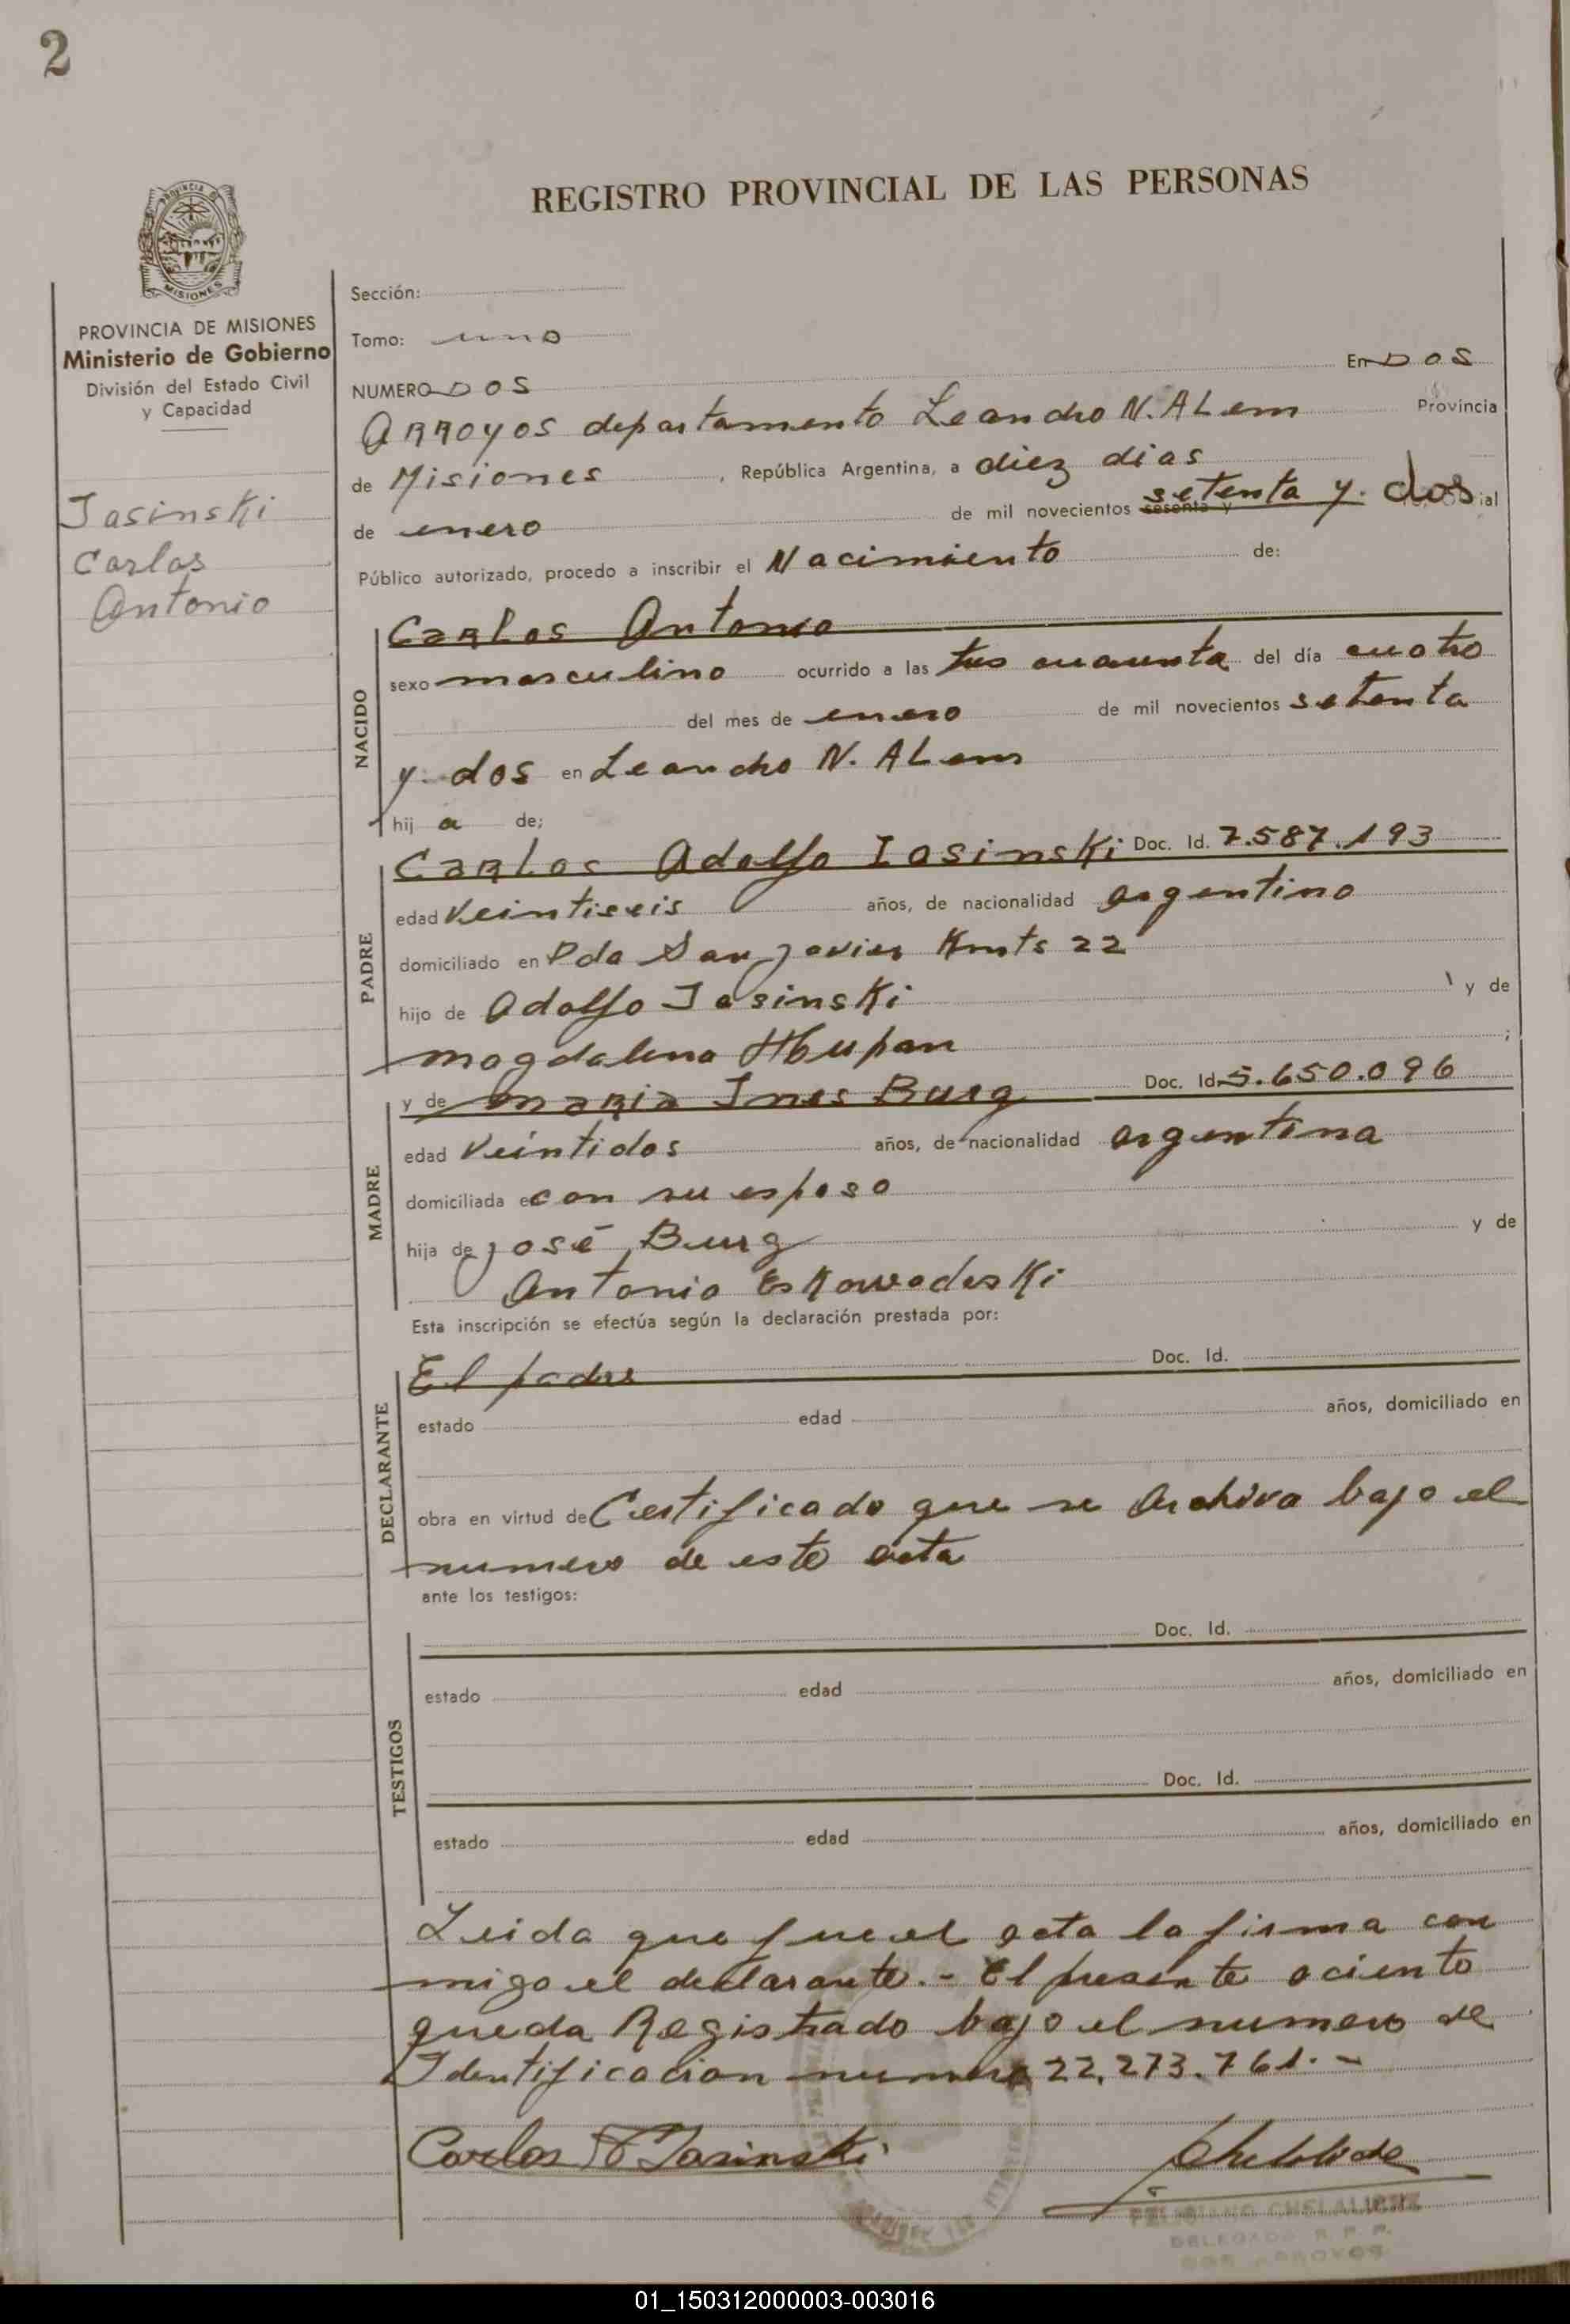 2
REGISTRO PROVINCIAL DE LAS PERSONAS
PROVINCIA DE MISIONES
Ministerio de Gobierno
División del Estado Civil
y Capacidad
Jasinski
Carlos
Antonio
Sección:
Tomo: uno
NUMERO DOS En DOS
ARROYOS departamento Leandro N. ALem Provincia
de Misiones, República Argentina, a diez dias
de enero de mil novecientos sesenta y setenta y. dos ial
Público autorizado, procedo a inscribir el Nacimiento de:
NACIDO
Carlos Antonio
sexo masculino ocurrido a las tres cuarenta del día cuatro
del mes de enero de mil novecientos setenta
y. dos en Leandro N. ALem
hij a de;
PADRE
Carlos Adolfo Iasinski Doc. Id. 7.587.193
edad Veintiseis años, de nacionalidad argentino
domiciliado en Pda San javier Kmts 22
hijo de Adolfo Jasinski y de
magdalena ;
MADRE
y de maria Ines Burg Doc. Id. 5.650.096
edad Veintidos años, de nacionalidad argentina
domiciliada e con su esposo
hija de josé Burg y de
Antonia
Esta inscripción se efectúa según la declaración prestada por:
DECLARANTE
El padre Doc. Id.
estado edad años, domiciliado en
obra en virtud de Certificado que se Archiva bajo el
numero de esta acta
ante los testigos:
TESTIGOS
Doc. Id.
estado edad años, domiciliado en
Doc. Id.
estado edad años, domiciliado en
Leida que fue el acta la firma con
migo el declarante.- El presente aciento
queda Registrado bajo el numero de
Identificacion numero 22.273.761.-
Carlos A Jasinski
DELEGADO R. P. P.
DOS ARROYOS
01_150312000003-003016